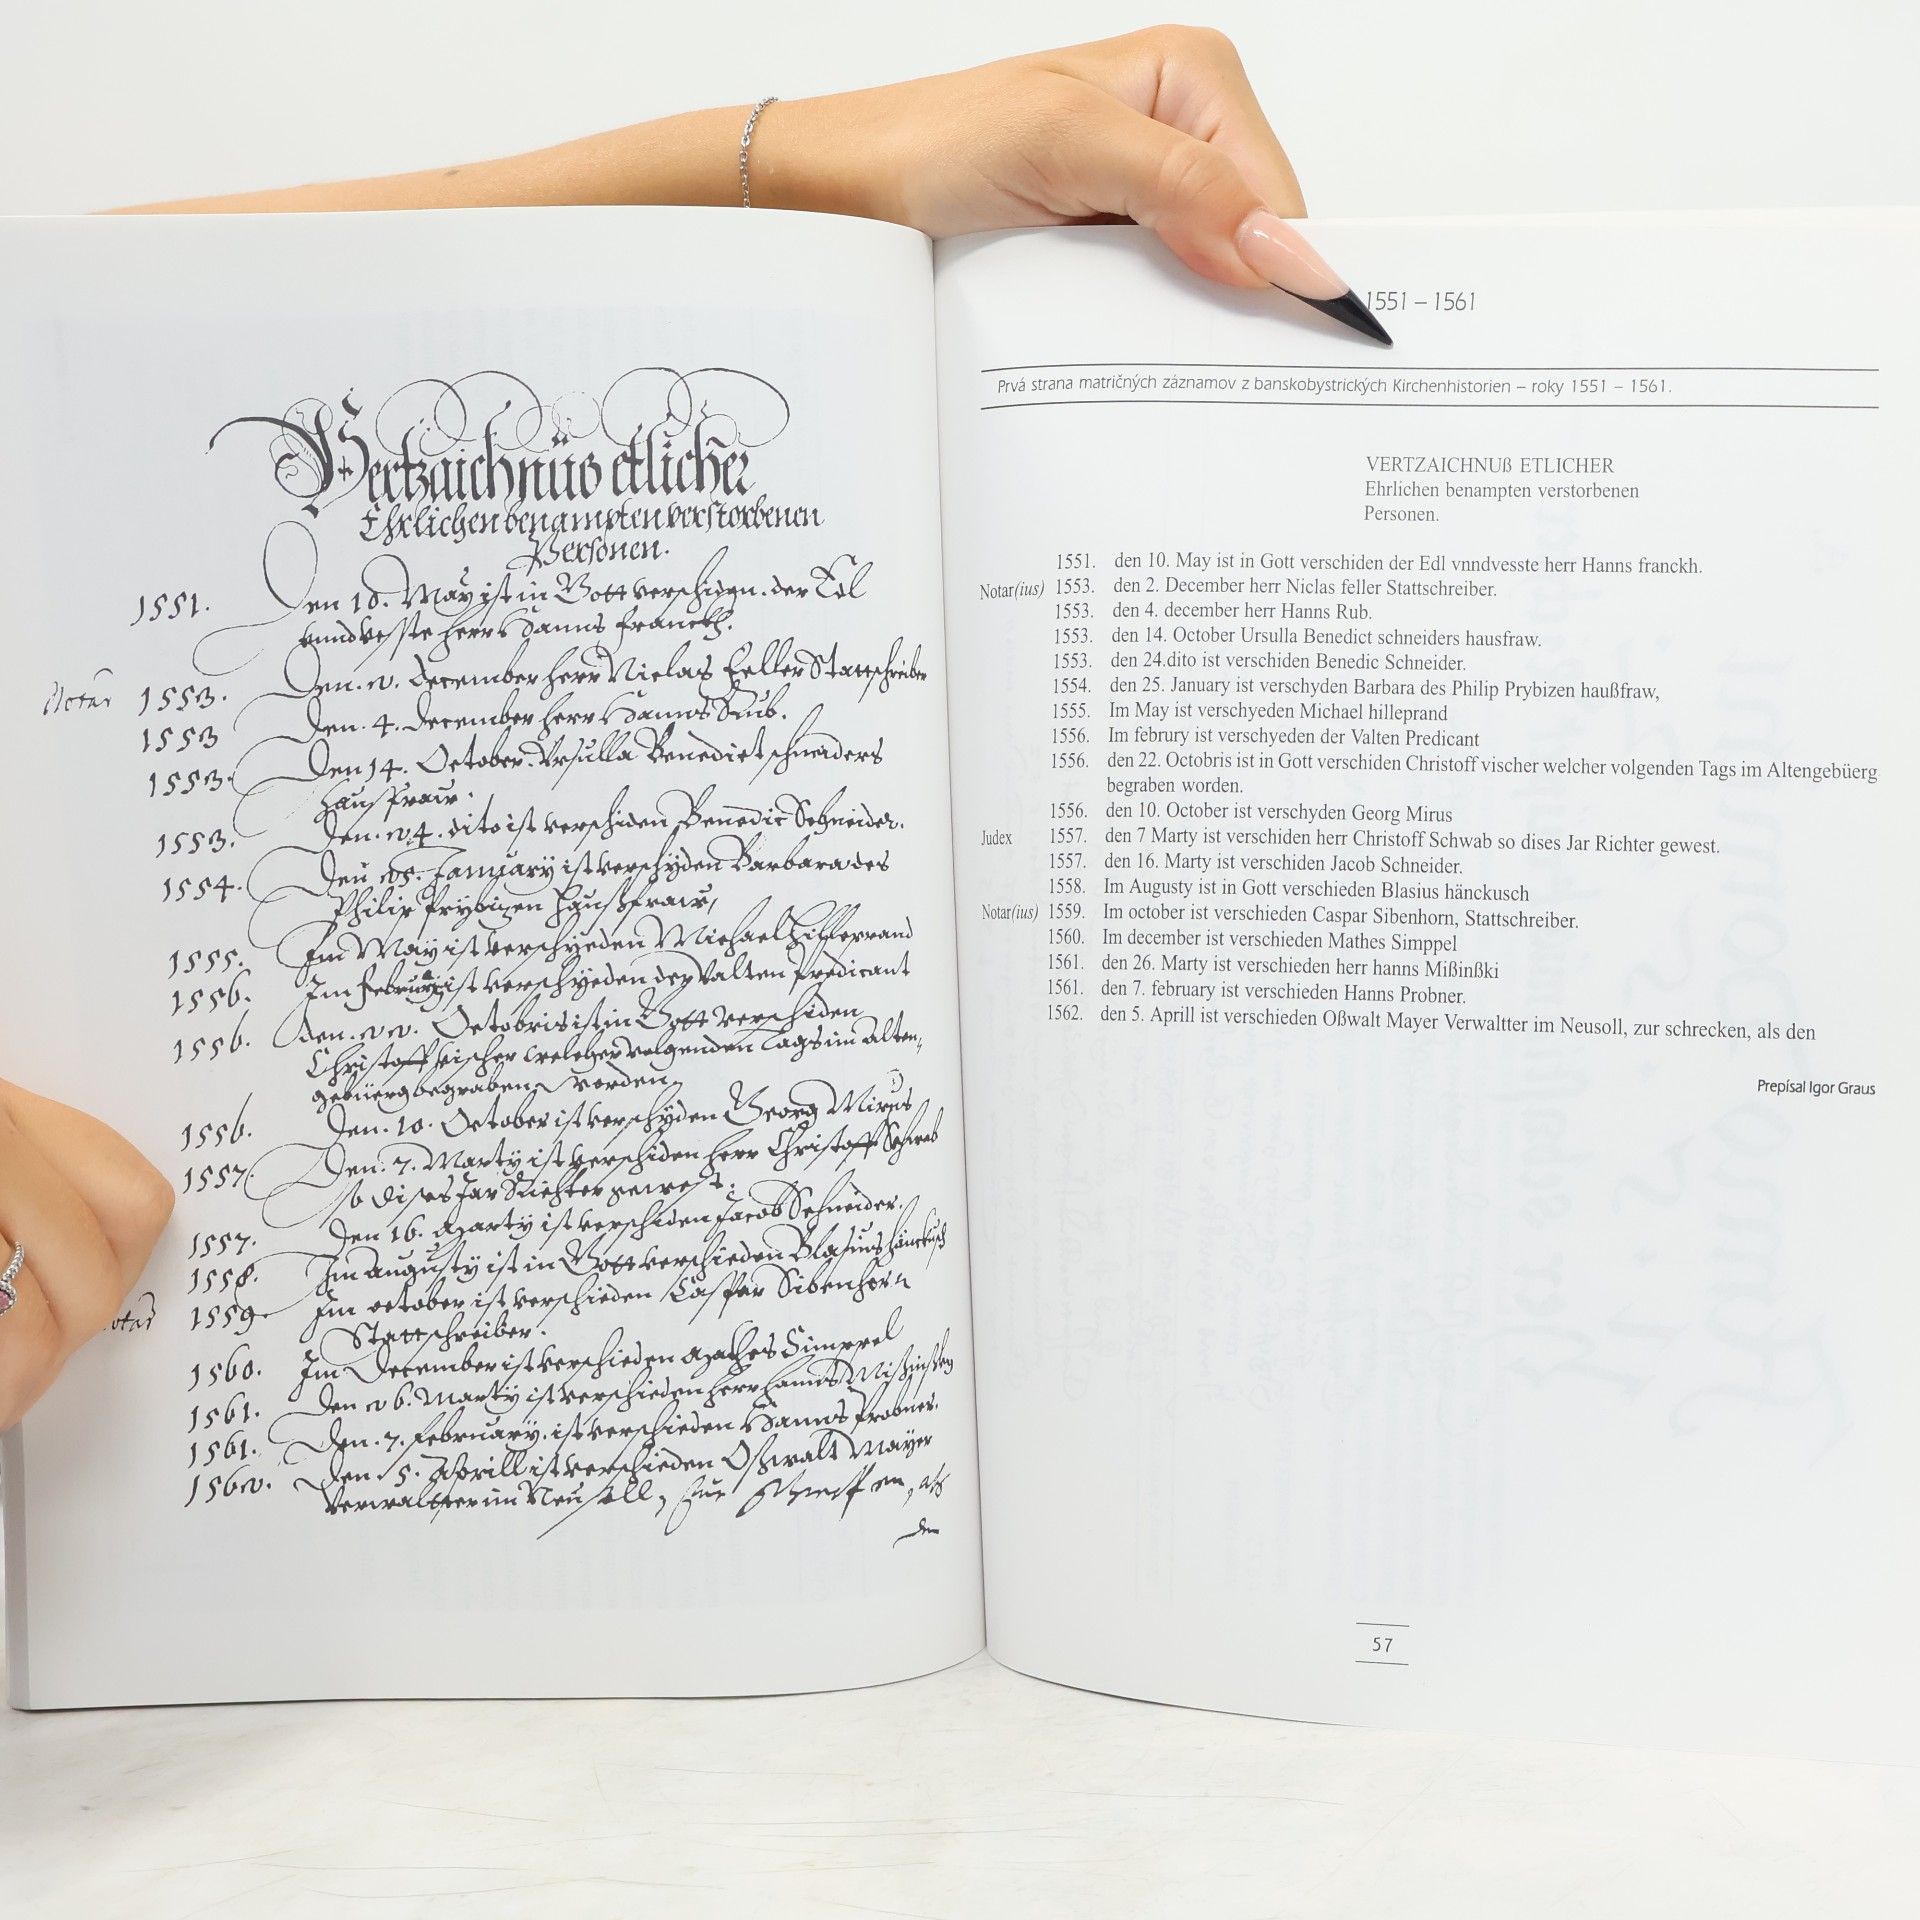 Vertzaichnüs etlicher
Ehrlichen benampten verstorbenen
Personen.
1551. Den 10. May ist in Gott verschiden. der Edl
vnnd vesste herr Hanns franckh.
Notar 1553. Den. 2. december herr Niclas feller Stattschreiber
1553 Den. 4. december herr Hanns Rub.
1553. Den 14. October. Vrsulla Benedict schneiders
hausfraw.
1553. Den. 24. dito ist verschiden Benedic Schneider.
1554. Den 25. January ist verschyden Barbara des
Philip Prybizen haußfraw,
1555. Im May ist verschyeden Michael hilleprand
1556. Im february ist verschyeden der Valten Predicant
1556. den. 22. Octobris ist in Gott verschiden
Christoff vischer welcher volgenden Tags im alten„
gebüerg begraben worden.
1556. Den. 10. October ist verschyden Georg Mirus
1557. Den. 7. Marty ist verschiden herr Christoff Schwab
so dises Jar Richter gewest.
1557. Den 16. Marty ist verschiden Jacob Schneider.
1558. Im Augusty ist in Gott verschieden Blasius hänckusch
otar 1559. Im october ist verschieden Caspar Sibenhorn
Stattschreiber.
1560. Im December ist verschieden Mathes Simppel
1561. Den 26. Marty ist verschieden herr hanns Mißinßky
1561. Den. 7. february. ist verschieden Hanns Probner.
1562. Den. 5. Aprill ist verschieden Oßwalt Mayer
Verwaltter im Neusoll, zur schrecken, als
den
1551 – 1561
Prvá strana matričných záznamov z banskobystrických Kirchenhistorien – roky 1551 – 1561.
VERTZAICHNUß ETLICHER
Ehrlichen benampten verstorbenen
Personen.
1551. den 10. May ist in Gott verschiden der Edl vnndvesste herr Hanns franckh.
Notar(ius) 1553. den 2. December herr Niclas feller Stattschreiber.
1553. den 4. december herr Hanns Rub.
1553. den 14. October Ursulla Benedict schneiders hausfraw.
1553. den 24.dito ist verschiden Benedic Schneider.
1554. den 25. January ist verschyden Barbara des Philip Prybizen haußfraw,
1555. Im May ist verschyeden Michael hilleprand
1556. Im februry ist verschyeden der Valten Predicant
1556. den 22. Octobris ist in Gott verschiden Christoff vischer welcher volgenden Tags im Altengebüerg
begraben worden.
1556. den 10. October ist verschyden Georg Mirus
Judex 1557. den 7 Marty ist verschiden herr Christoff Schwab so dises Jar Richter gewest.
1557. den 16. Marty ist verschiden Jacob Schneider.
1558. Im Augusty ist in Gott verschieden Blasius hänckusch
Notar(ius) 1559. Im october ist verschieden Caspar Sibenhorn, Stattschreiber.
1560. Im december ist verschieden Mathes Simppel
1561. den 26. Marty ist verschieden herr hanns Mißinßki
1561. den 7. february ist verschieden Hanns Probner.
1562. den 5. Aprill ist verschieden Oßwalt Mayer Verwaltter im Neusoll, zur schrecken, als den
Prepísal Igor Graus
57